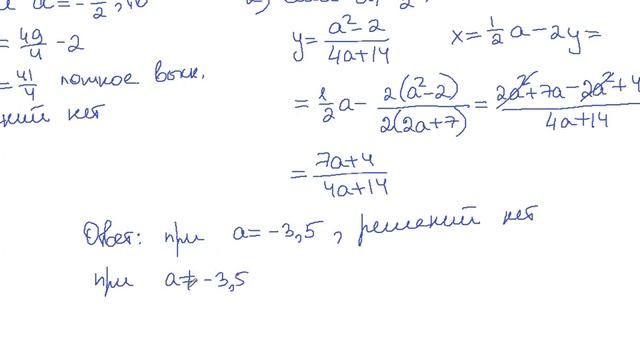 a = -7/2, то
= 49/4 - 2
= 41/4 ложное выск.
нет
y = (a² - 2)/(4a + 14)    x = 1/2 a - 2y =
= 1/2 a - 2(a² - 2)/2(2a + 7) = (2a² + 7a - 2a² + 4)/(4a + 14)
= (7a + 4)/(4a + 14)
Ответ: при a = -3,5, решений нет
при a ≠ -3,5